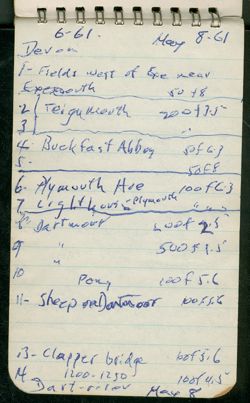 6-61. May 8-61
Devon
1- Fields west of Exe near
Exemouth 50 f 8
2 Teignmouth 200 f 3.5
3 " "
4 Buckfast Abbey 50 f 6.3
5- 50 f 8
6- Plymouth Hoe 100 f 6.3
7 Lighthouse - Plymouth " "
8- Dartmoor
9 " 500 f 3.5
"
10 Pony 100 f 5.6
11- Sheep on Dartmoor 100 f 5.6
13- Clapper bridge 100 f 5.6
14 1200-1250 100 f 4.5
Dart-river May 8